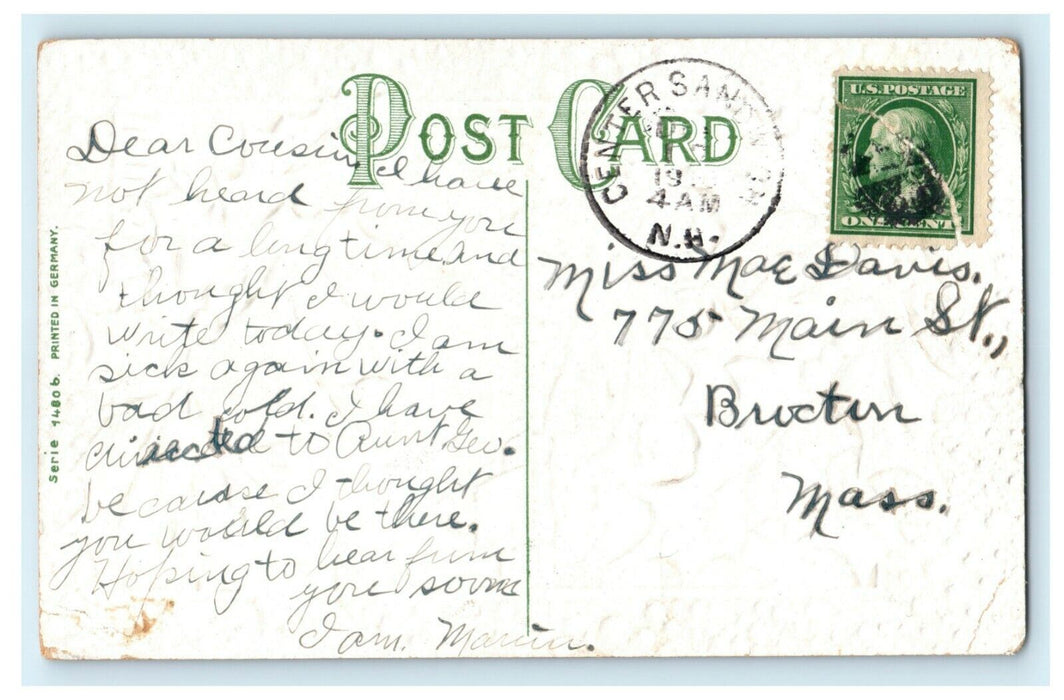 POST CARD
CENTER SAN
19
4 AM
N.H.
U.S. POSTAGE
ONE CENT
Dear Cousin I have
not heard from you
for a long time and
thought I would
write today. I am
sick again with a
bad cold. I have
directed to Aunt Geo.
because I thought
you would be there.
Hoping to hear from
you soon
I am.
Miss Mae Davis.
775 Main St.,
Brocton
Mass.
Serie 14806. PRINTED IN GERMANY.